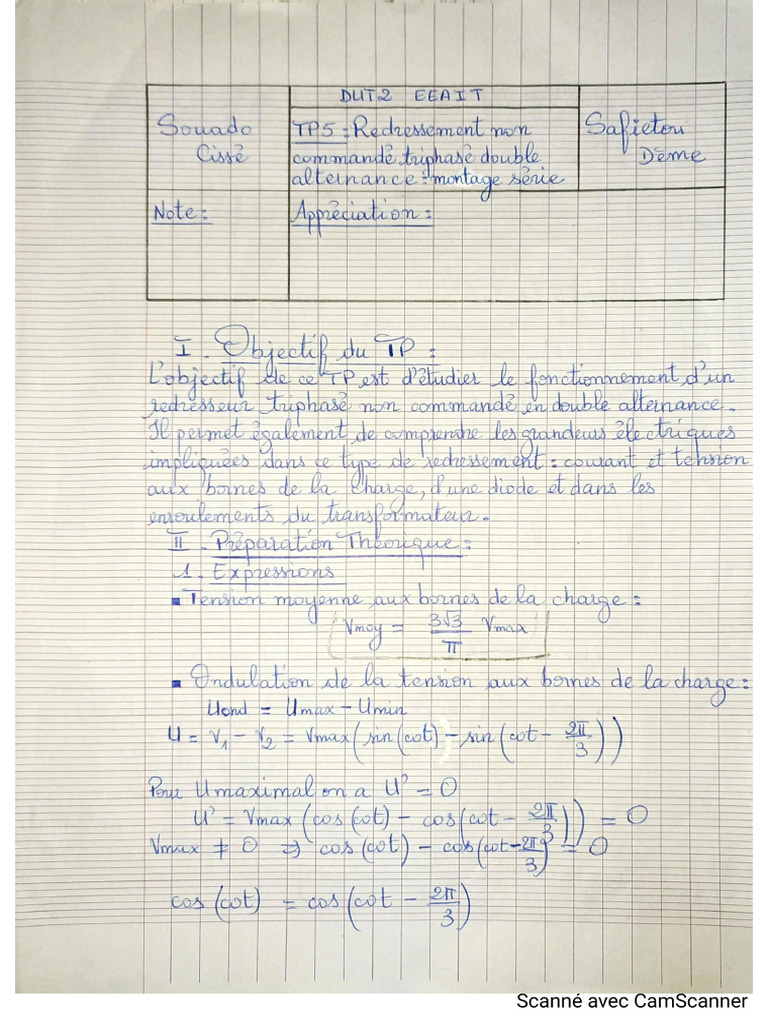 DUT2 EEAIT
Souado Cissé
TP5 : Redressement non commandé triphasé double alternance : montage série
Safietou Dème
Note :
Appréciation :
I. Objectif du TP :
L'objectif de ce TP est d'étudier le fonctionnement d'un
redresseur triphasé non commandé en double alternance.
Il permet également de comprendre les grandeurs électriques
impliquées dans ce type de redressement : courant et tension
aux bornes de la charge, d'une diode et dans les
enroulements du transformateur.
II. Préparation Théorique :
1. Expressions
▪ Tension moyenne aux bornes de la charge :
Vmoy = 3√3/π Vmax
▪ Ondulation de la tension aux bornes de la charge :
Uond = Umax - Umin
U = V1 - V2 = Vmax(sin(ωt) - sin(ωt - 2π/3))
Pour U maximal on a U' = 0
U' = Vmax (cos(ωt) - cos(ωt - 2π/3)) = 0
Vmax ≠ 0 ⇒ cos(ωt) - cos(ωt - 2π/3) = 0
cos(ωt) = cos(ωt - 2π/3)
Scanné avec CamScanner